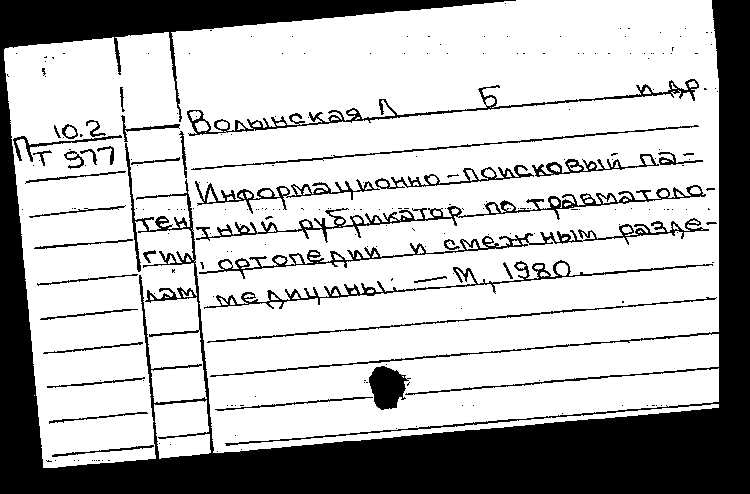 10.2 Волынская, Л Б и др.
П
Т 977
Информационно-поисковый па-
тентный рубрикатор по травматоло-
гии, ортопедии и смежным разде-
лам медицины. — М., 1980.